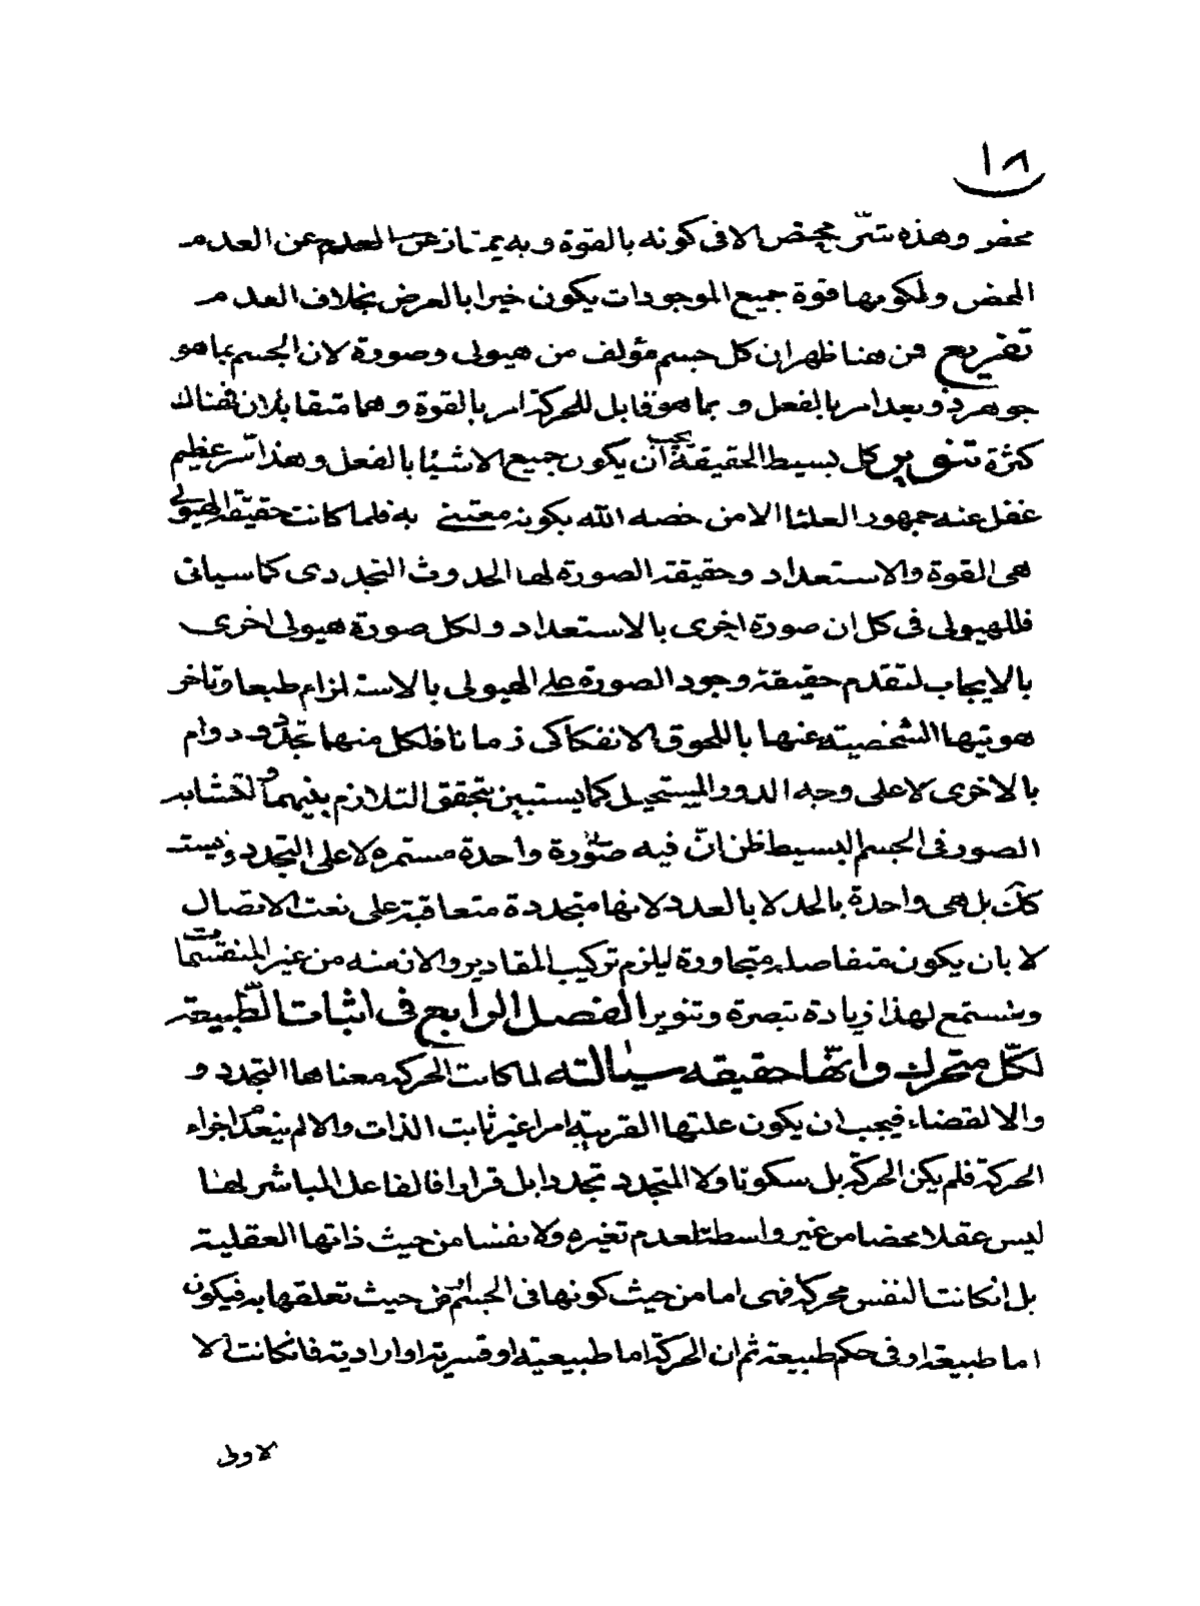 ١٨
محض وهذه شرّ محض الا فى كونه بالقوة وبه يمتاز عن العدم عن العدم
المحض ولكونها قوة جميع الموجودات يكون خيرا بالعرض بخلاف العدم
تفريع فمن هنا ظهر ان كل جسم مؤلف من هيولى وصورة لان الجسم بما هو
جوهر ذو بعد امر بالفعل و بما هو قابل للحركة امر بالقوة وهما متقابلان فهناك
كثرة تنوير كل بسيط الحقيقة يجب ان يكون جميع الاشئا بالفعل وهذا سّر عظيم
غفل عنه جمهور العلمٔا الا من خصه الله بكونه معتنى به فلما كانت حقيقة الهيولى
هى القوة والاستعداد وحقيقة الصورة لها الحدوث التجددى كما سياتى
فللهيولى فى كل ان صورة اخرى بالاستعداد ولكل صورة هيولى اخرى
بالايجاب لتقدم حقيقة وجود الصورة على الهيولى بالاستلزام طبعا وتاخر
هويتها الشخصية عنها باللحوق الانفكاكى زمانا فلكل منهما تجدّد ودوام
بالاخرى لا على وجه الدور المستحيل كما يستبين بتحقق التلازم بينهما و لتشابه
الصور فى الجسم البسيط ظن انّ فيه صورة واحدة مستمرة لا على التجدد وليست
كك بل هى واحدة بالحد لا بالعدد لانها متجددة متعاقبة على نعت الاتصال
لا بان يكون متفاصلة متجاورة ليلزم تركيب المقادير والازمنه من غير المنقسمات
وستسمع لهذا زيادة تبصرة وتنوير الفصل الرابع فى اثبات الطّبيعة
لكلّ متحرك وانّها حقيقه سيالته لما كانت الحركه معناها التجدد و
والانقضاء فيجب ان يكون علتها القريبة امرا غير ثابت الذات والا لم ينعدم اجزاء
الحركة فلم يكن الحركة بل سكونا ولا المتجدد تجددا بل قرارا فالفاعل المباشر لهنا
ليس عقلا محضا من غير واسطة لعدم تغيره ولا نفسا من حيث ذاتها العقلية
بل انكانت النفس محركه فهى اما من حيث كونها فى الجسم او من حيث تعلقها به فيكون
اما طبيعة او فى حكم طبيعة ثم ان الحركة اما طبيعية او قسرية او ارادية فانكانت الا
لاولى